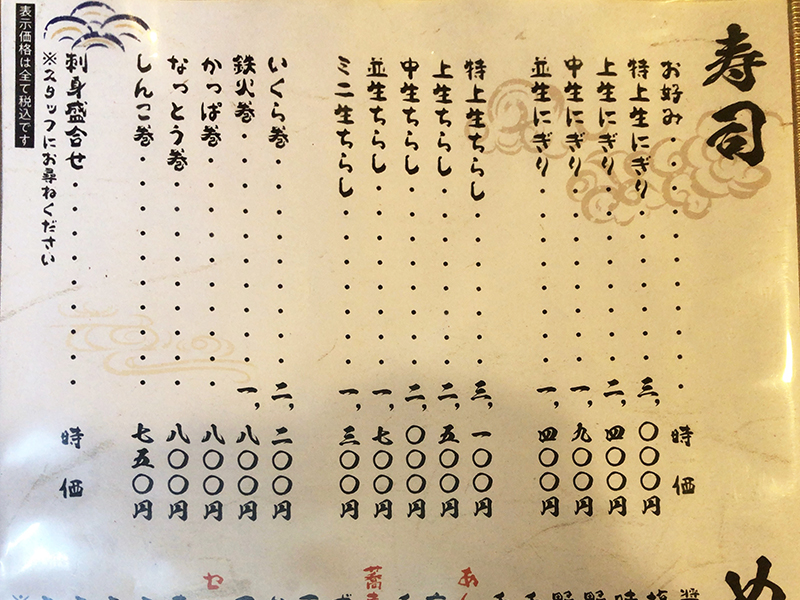 寿司
お好み・・・・・・・・・・・時価
特上生にぎり・・・・・・・三、〇〇〇円
上生にぎり・・・・・・・・二、四〇〇円
中生にぎり・・・・・・・・一、九〇〇円
並生にぎり・・・・・・・・一、四〇〇円
特上生ちらし・・・・・・・三、一〇〇円
上生ちらし・・・・・・・・二、五〇〇円
中生ちらし・・・・・・・・二、〇〇〇円
並生ちらし・・・・・・・・一、七〇〇円
ミニ生ちらし・・・・・・・一、三〇〇円
いくら巻・・・・・・・・・二、二〇〇円
鉄火巻・・・・・・・・・・一、八〇〇円
かっぱ巻・・・・・・・・・・八〇〇円
なっとう巻・・・・・・・・・八〇〇円
しんこ巻・・・・・・・・・・七五〇円
刺身盛合せ・・・・・・・・・時価
※スタッフにお尋ねください
表示価格は全て税込です